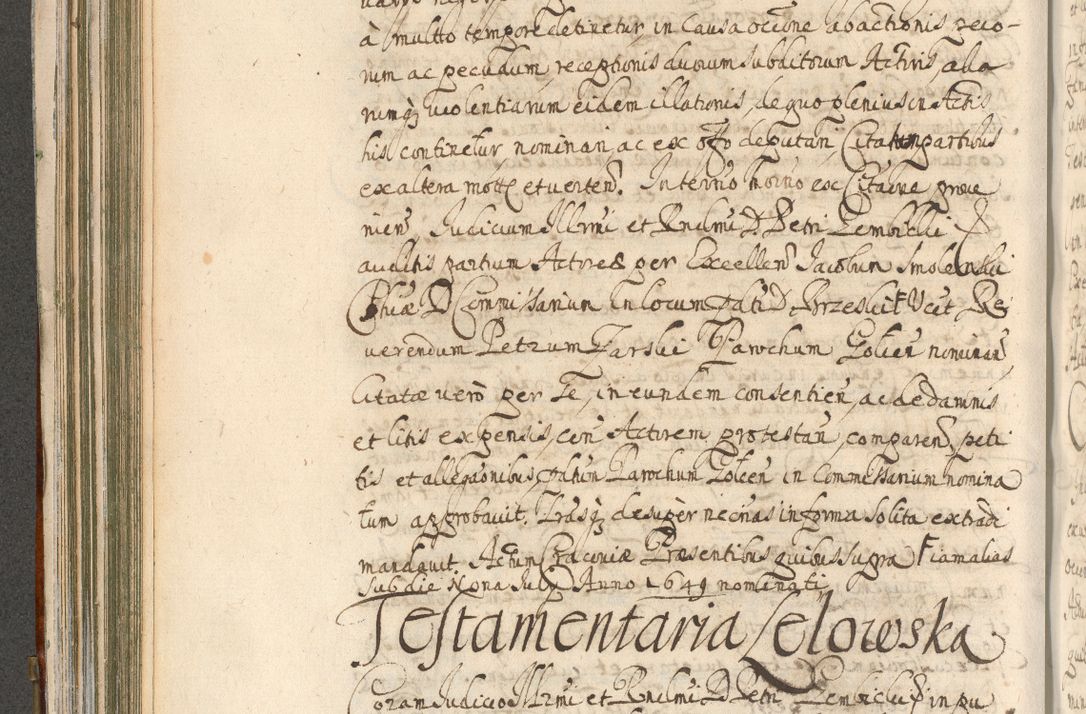 à multto tempore detinetur, in Causa occõne abactionis peco-
rum ac pecudum, receptionis duorum subditorum Actoris, alia
rumq; violentiarum eidem illationis, de quo plenius in Actis
his continetur nominan, ac ex offo deputan, Citatum partibus
ex altera motte et verten. In termo horno ex Citãne prove
nien Judicium Illrmi et Rndmi D Petri Gembicki
auditis partium Actoreæ per Excellen Jacobum Smolenski
Phiæ D Commissarium in locum gsi D. Brzeski Ucit Re
verendum Petrum Zarski Parochum Golcen nominan
Citatæ verò per se, in eundem consentien, ac de damnis
et litis expensis, con Actorem protestan, comparen, peti
tis et allegaonibus, gsum Parochum Golcen in Commessarium nomina
tum approbavit. Lrasq; desupèr necrias in forma solita extradi
mandavit. Actum Cracoviæ Præsentibus quibus supra
sub die Nona July Anno 1649 nominati
Testamentaria Lelowska
Coram Judicio Illrmi et Rndmi D Petri Gembicki in pu